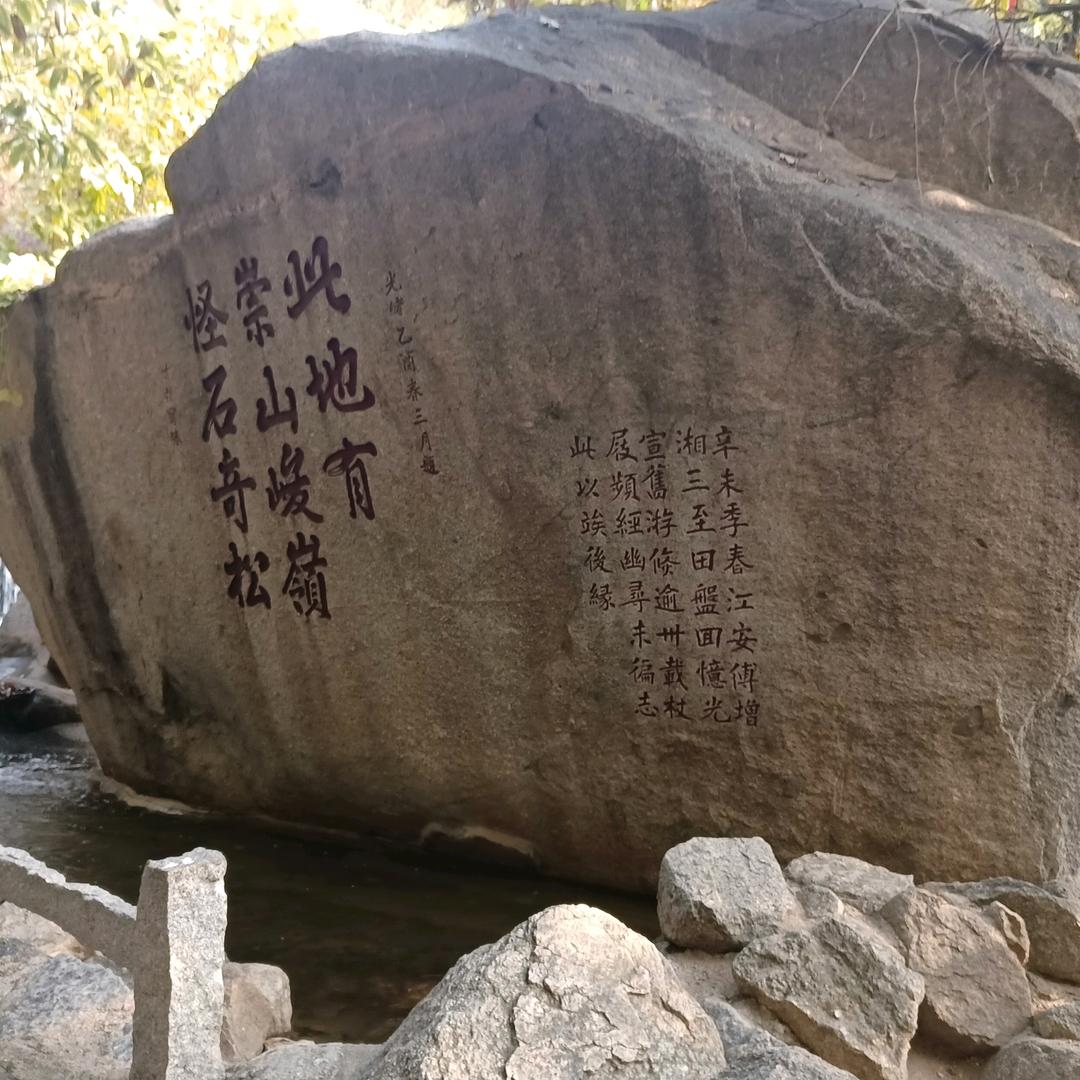 辛未季春江安傅增
湘三至田盤囬憶光
宣舊游倏逾卅載杖
屐頻經幽尋未徧志
此以竢後緣
光緒乙酉春三月題
此地有
崇山峻嶺
怪石竒松